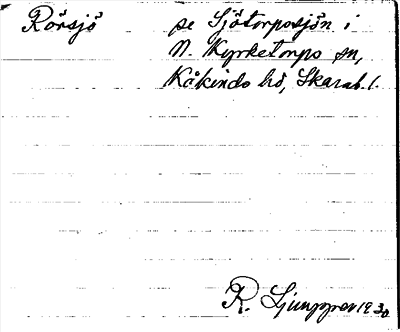 Rörsjö se Sjötorpasjön i
N. Kyrketorps sn,
Kåkinds hd, Skarab. l.
R. Ljunggren 1930